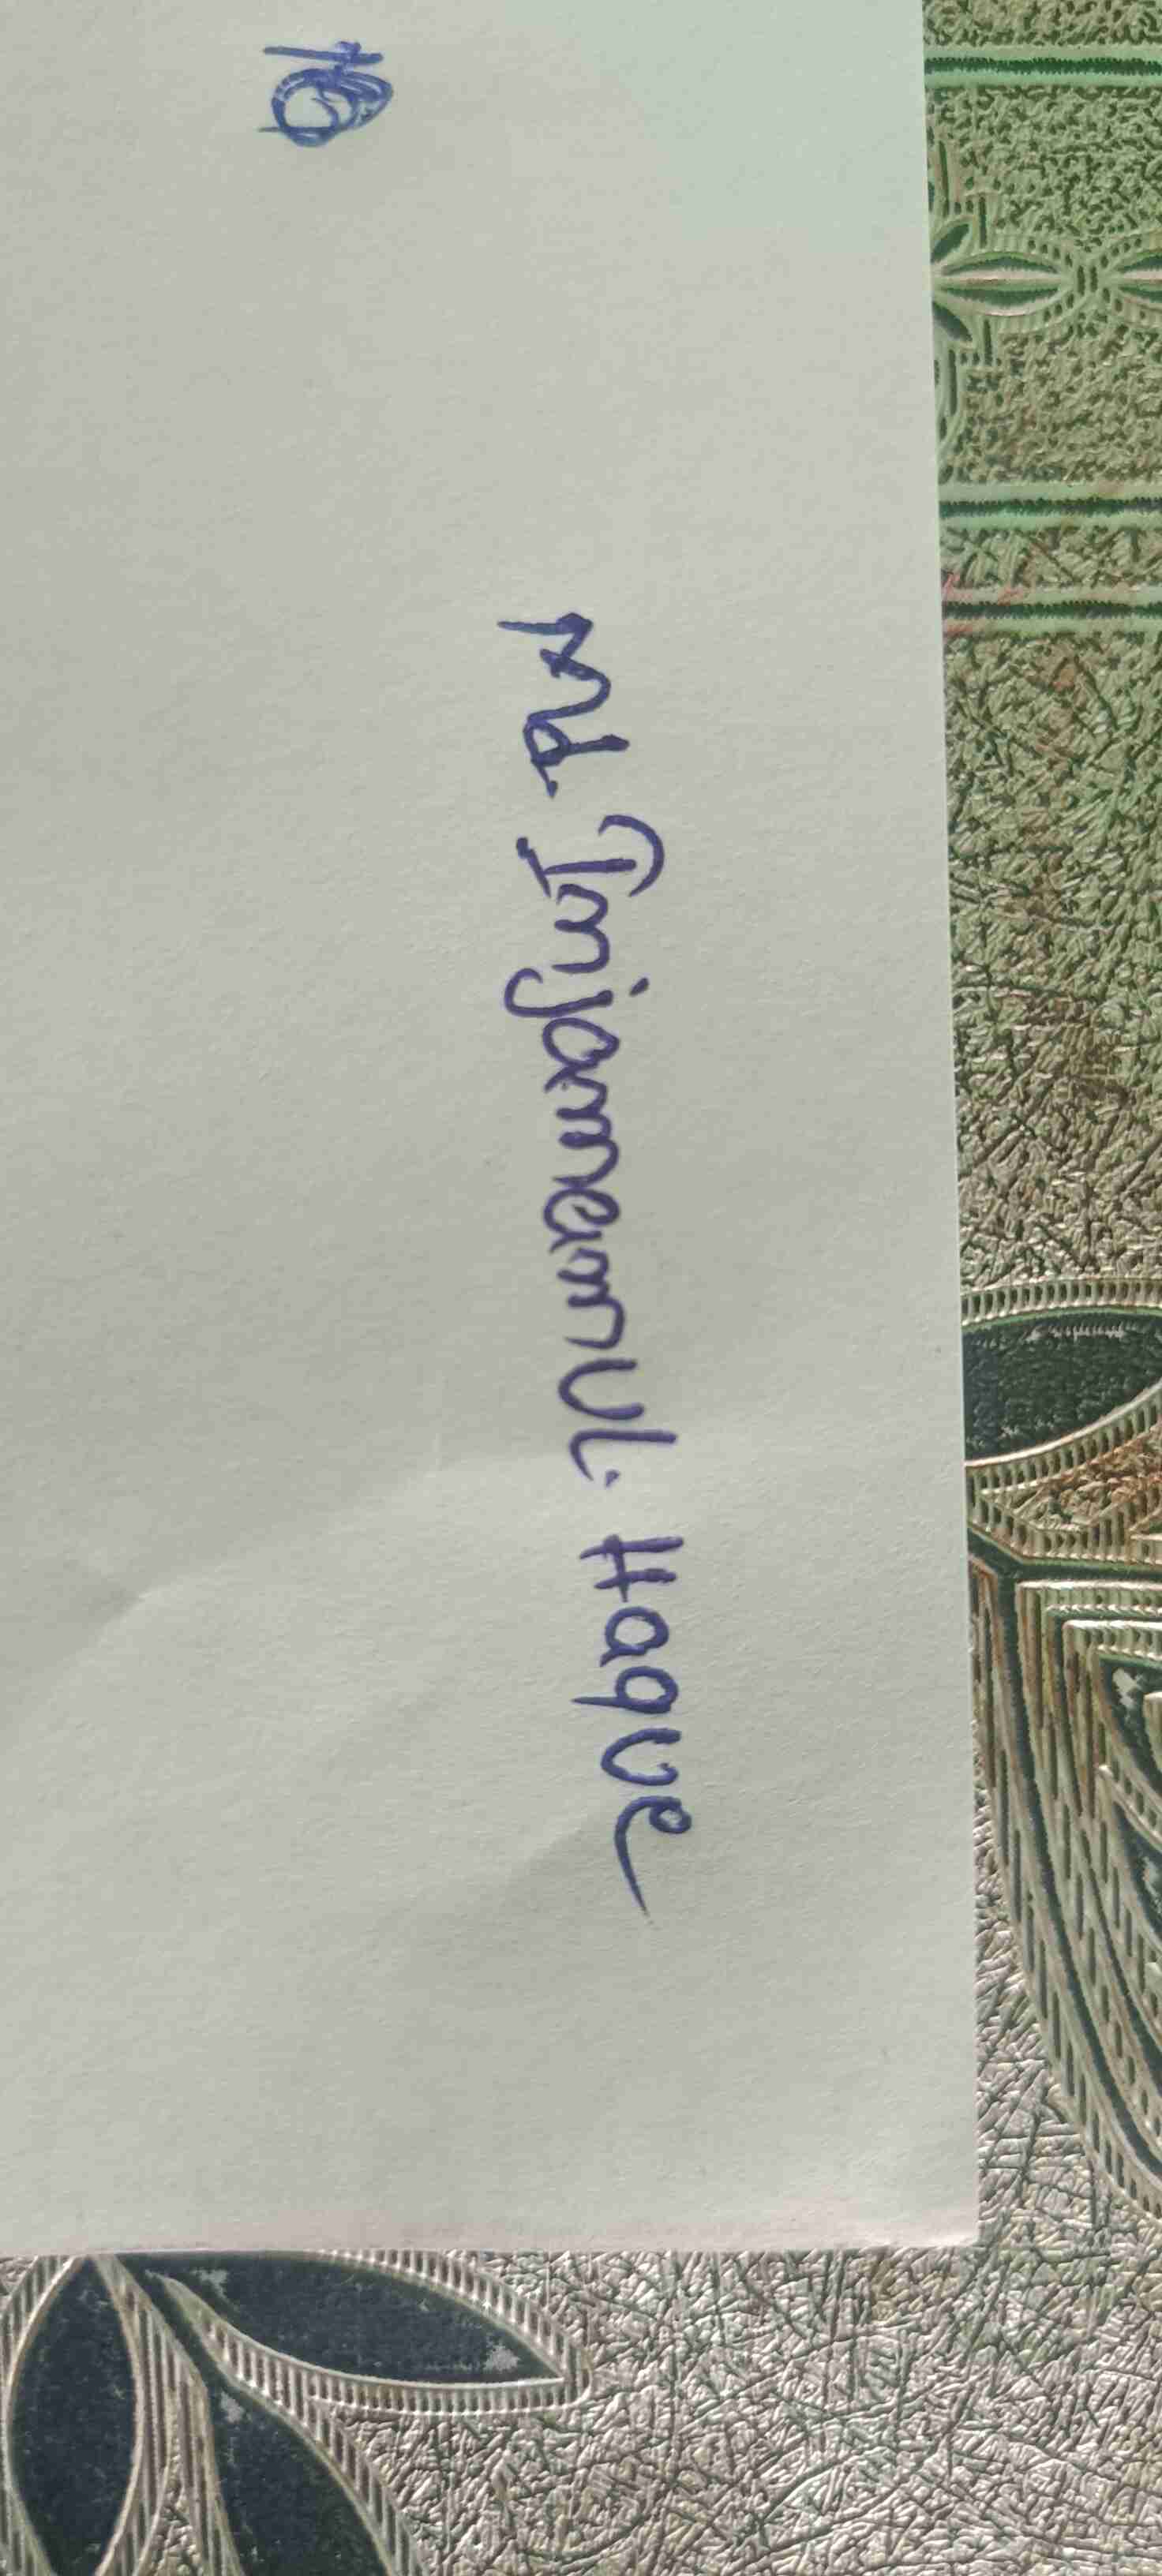 Md. Injamamul. Haque